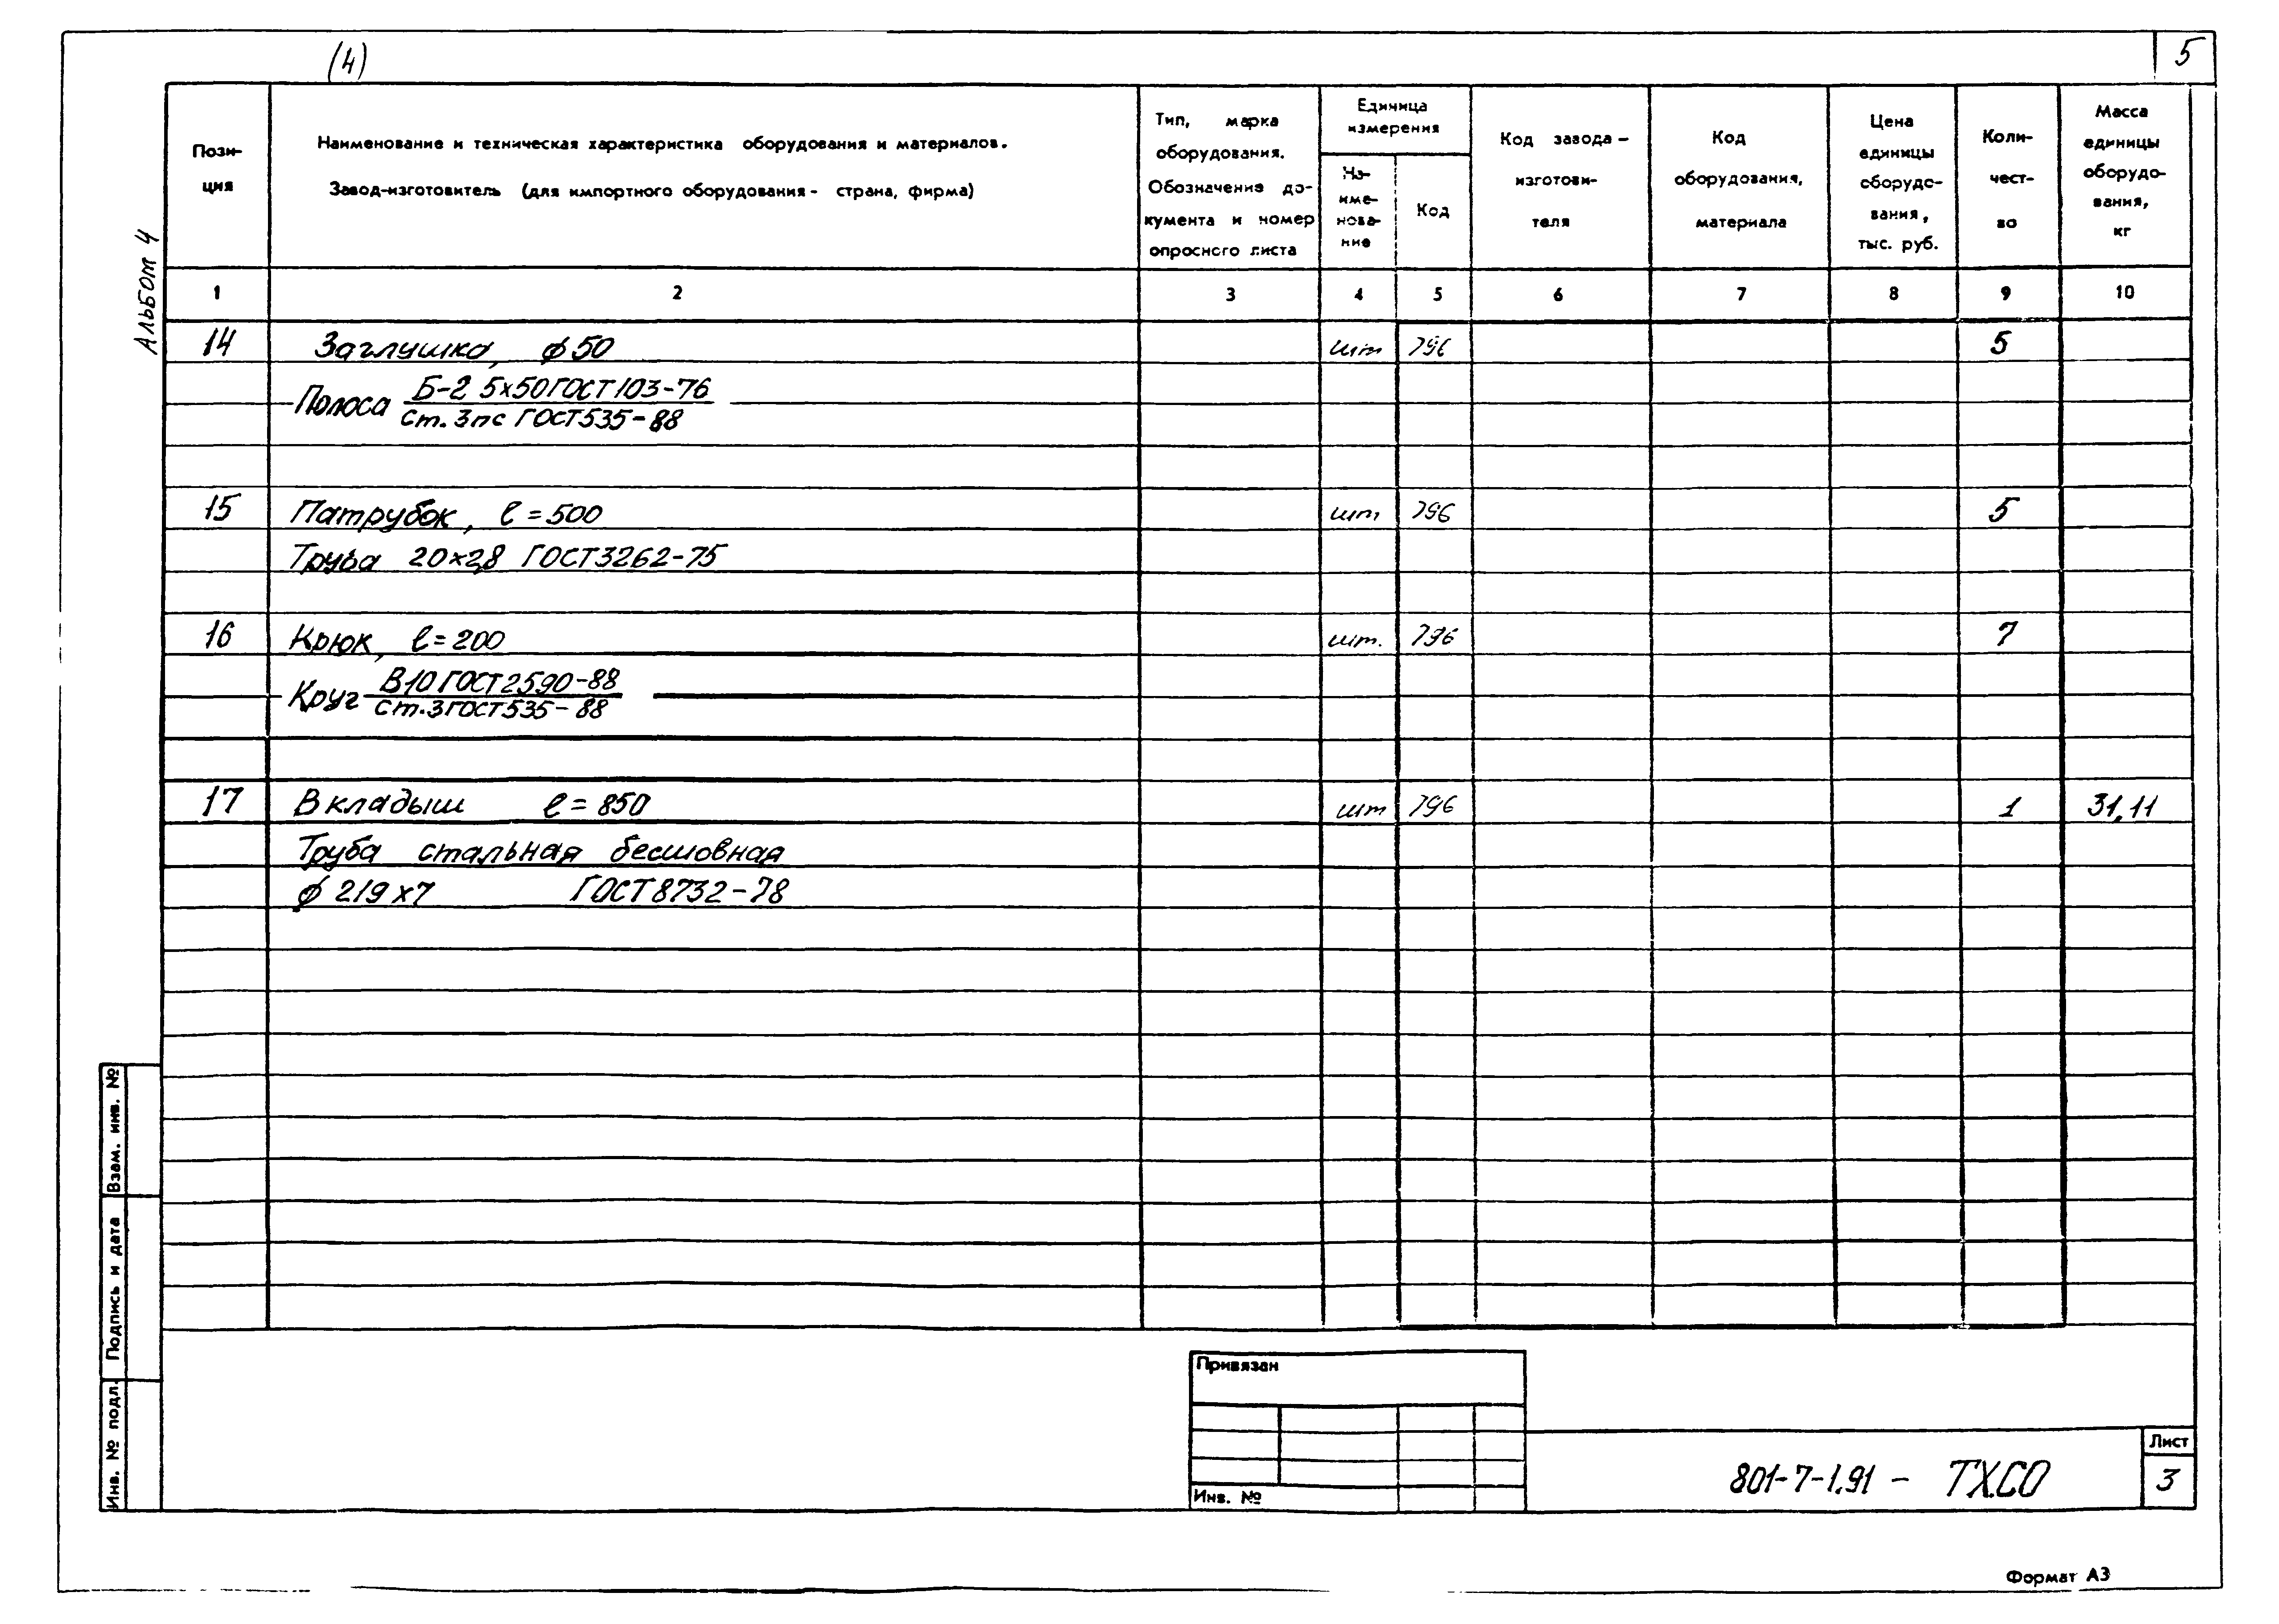 (4)
5
Альбом 4
Пози-
ция
Наименование и техническая характеристика оборудования и материалов.
Завод-изготовитель (для импортного оборудования - страна, фирма)
Тип, марка
оборудования.
Обозначение до-
кумента и номер
опросного листа
Единица
измерения
На-
име-
нова-
ние
Код
Код завода-
изготови-
теля
Код
оборудования,
материала
Цена
единицы
оборудо-
вания,
тыс. руб.
Коли-
чест-
во
Масса
единицы
оборудо-
вания,
кг
1 2 3 4 5 6 7 8 9 10
14 Заглушка, ϕ50 шт 796 5
Полоса Б-2 5х50 ГОСТ 103-76
Ст. 3пс ГОСТ 535-88
15 Патрубок, ℓ=500 шт 796 5
Труба 20×2,8 ГОСТ 3262-75
16 Крюк, ℓ=200 шт. 796 7
Круг В10 ГОСТ 2590-88
Ст.3 ГОСТ 535-88
17 Вкладыш ℓ=850 шт 796 1 31,11
Труба стальная бесшовная
ϕ 219х7 ГОСТ 8732-78
Взам. инв. №
Подпись и дата
Инв. № подл.
Привязан
Инв. №
801-7-1.91 - ТХ.СО
Лист
3
Формат А3